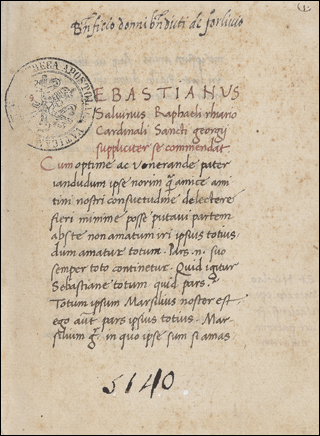 EBASTIANVS
Salvinus Raphaeli rhiario
Cardinali Sancti georgij
suppliciter se commendat.
Cum optime ac venerande pater
iandudum ipse norim q̃ amice ami
tini nostri consuetudine delectere
fieri minime posse putavi partem
abs te non amatum iri ipsius totius
dum amatur totum. Pars .n. suo
semper toto continetur. Quid igitur
Sebastiane totum quid pars?
Totum ipsum Marsilius noster est
ego aut pars ipsius totius. Mar-
silium g̃. in quo ipse sum si amas
5140